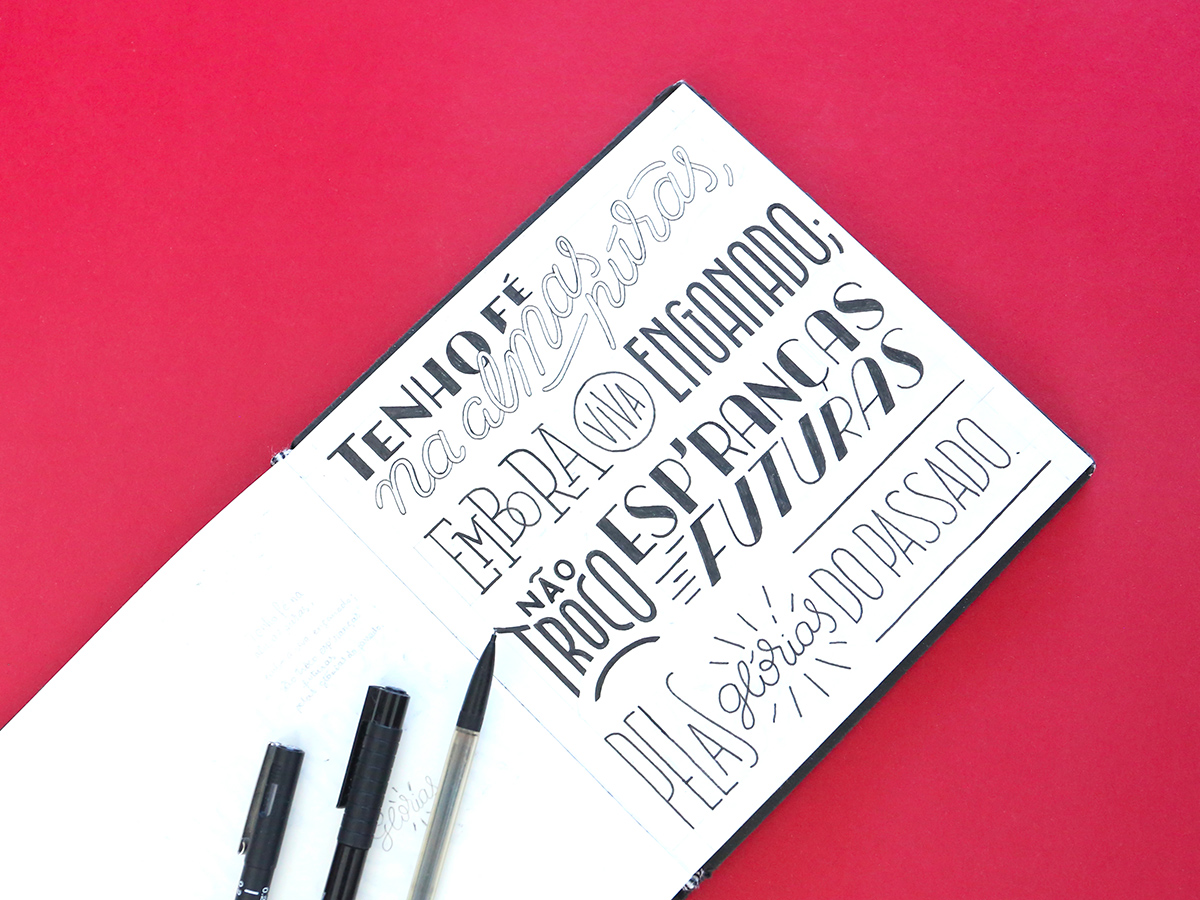 TENHO FÉ
na almas púras,
EMBORA VIVA ENGANADO;
NÃO
TROCO ESP'RANÇAS
FUTURAS
PELAS glórias DO PASSADO.
Glórias